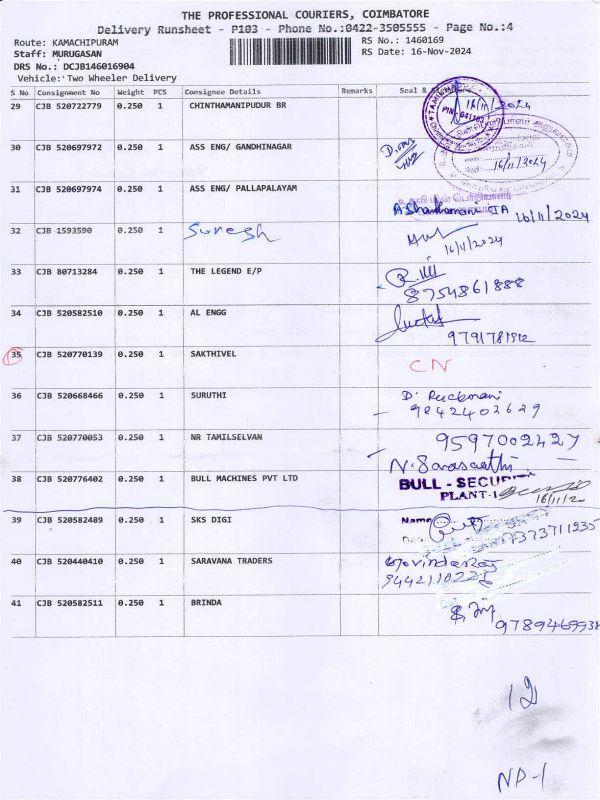 THE PROFESSIONAL COURIERS, COIMBATORE
Delivery Runsheet - P103 - Phone No.:0422-3505555 - Page No.:4
Route: KAMACHIPURAM
RS No.: 1460169
Staff: MURUGASAN
RS Date: 16-Nov-2024
DRS No.: DCJB146016904
Vehicle: Two Wheeler Delivery
S No Consignment No Weight PCS Consignee Details Remarks Seal &
29 CJB 520722779 0.250 1 CHINTHAMANIPUDUR BR 16/11/2024
30 CJB 520697972 0.250 1 ASS ENG/ GANDHINAGAR 16/11/2024
31 CJB 520697974 0.250 1 ASS ENG/ PALLAPALAYAM
16/11/2024
32 CJB 1593590 0.250 1 Suresh
16/11/2024
33 CJB 80713284 0.250 1 THE LEGEND E/P
8754861888
34 CJB 520582510 0.250 1 AL ENGG
9791781912
35 CJB 520770139 0.250 1 SAKTHIVEL CN
36 CJB 520668466 0.250 1 SURUTHI D. Ruckmani
9842402629
37 CJB 520770053 0.250 1 NR TAMILSELVAN 9597002427
38 CJB 520776402 0.250 1 BULL MACHINES PVT LTD BULL - SECURITY
PLANT-1
39 CJB 520582489 0.250 1 SKS DIGI Name
40 CJB 520440410 0.250 1 SARAVANA TRADERS Govindaraj
41 CJB 520582511 0.250 1 BRINDA
12
NP-1